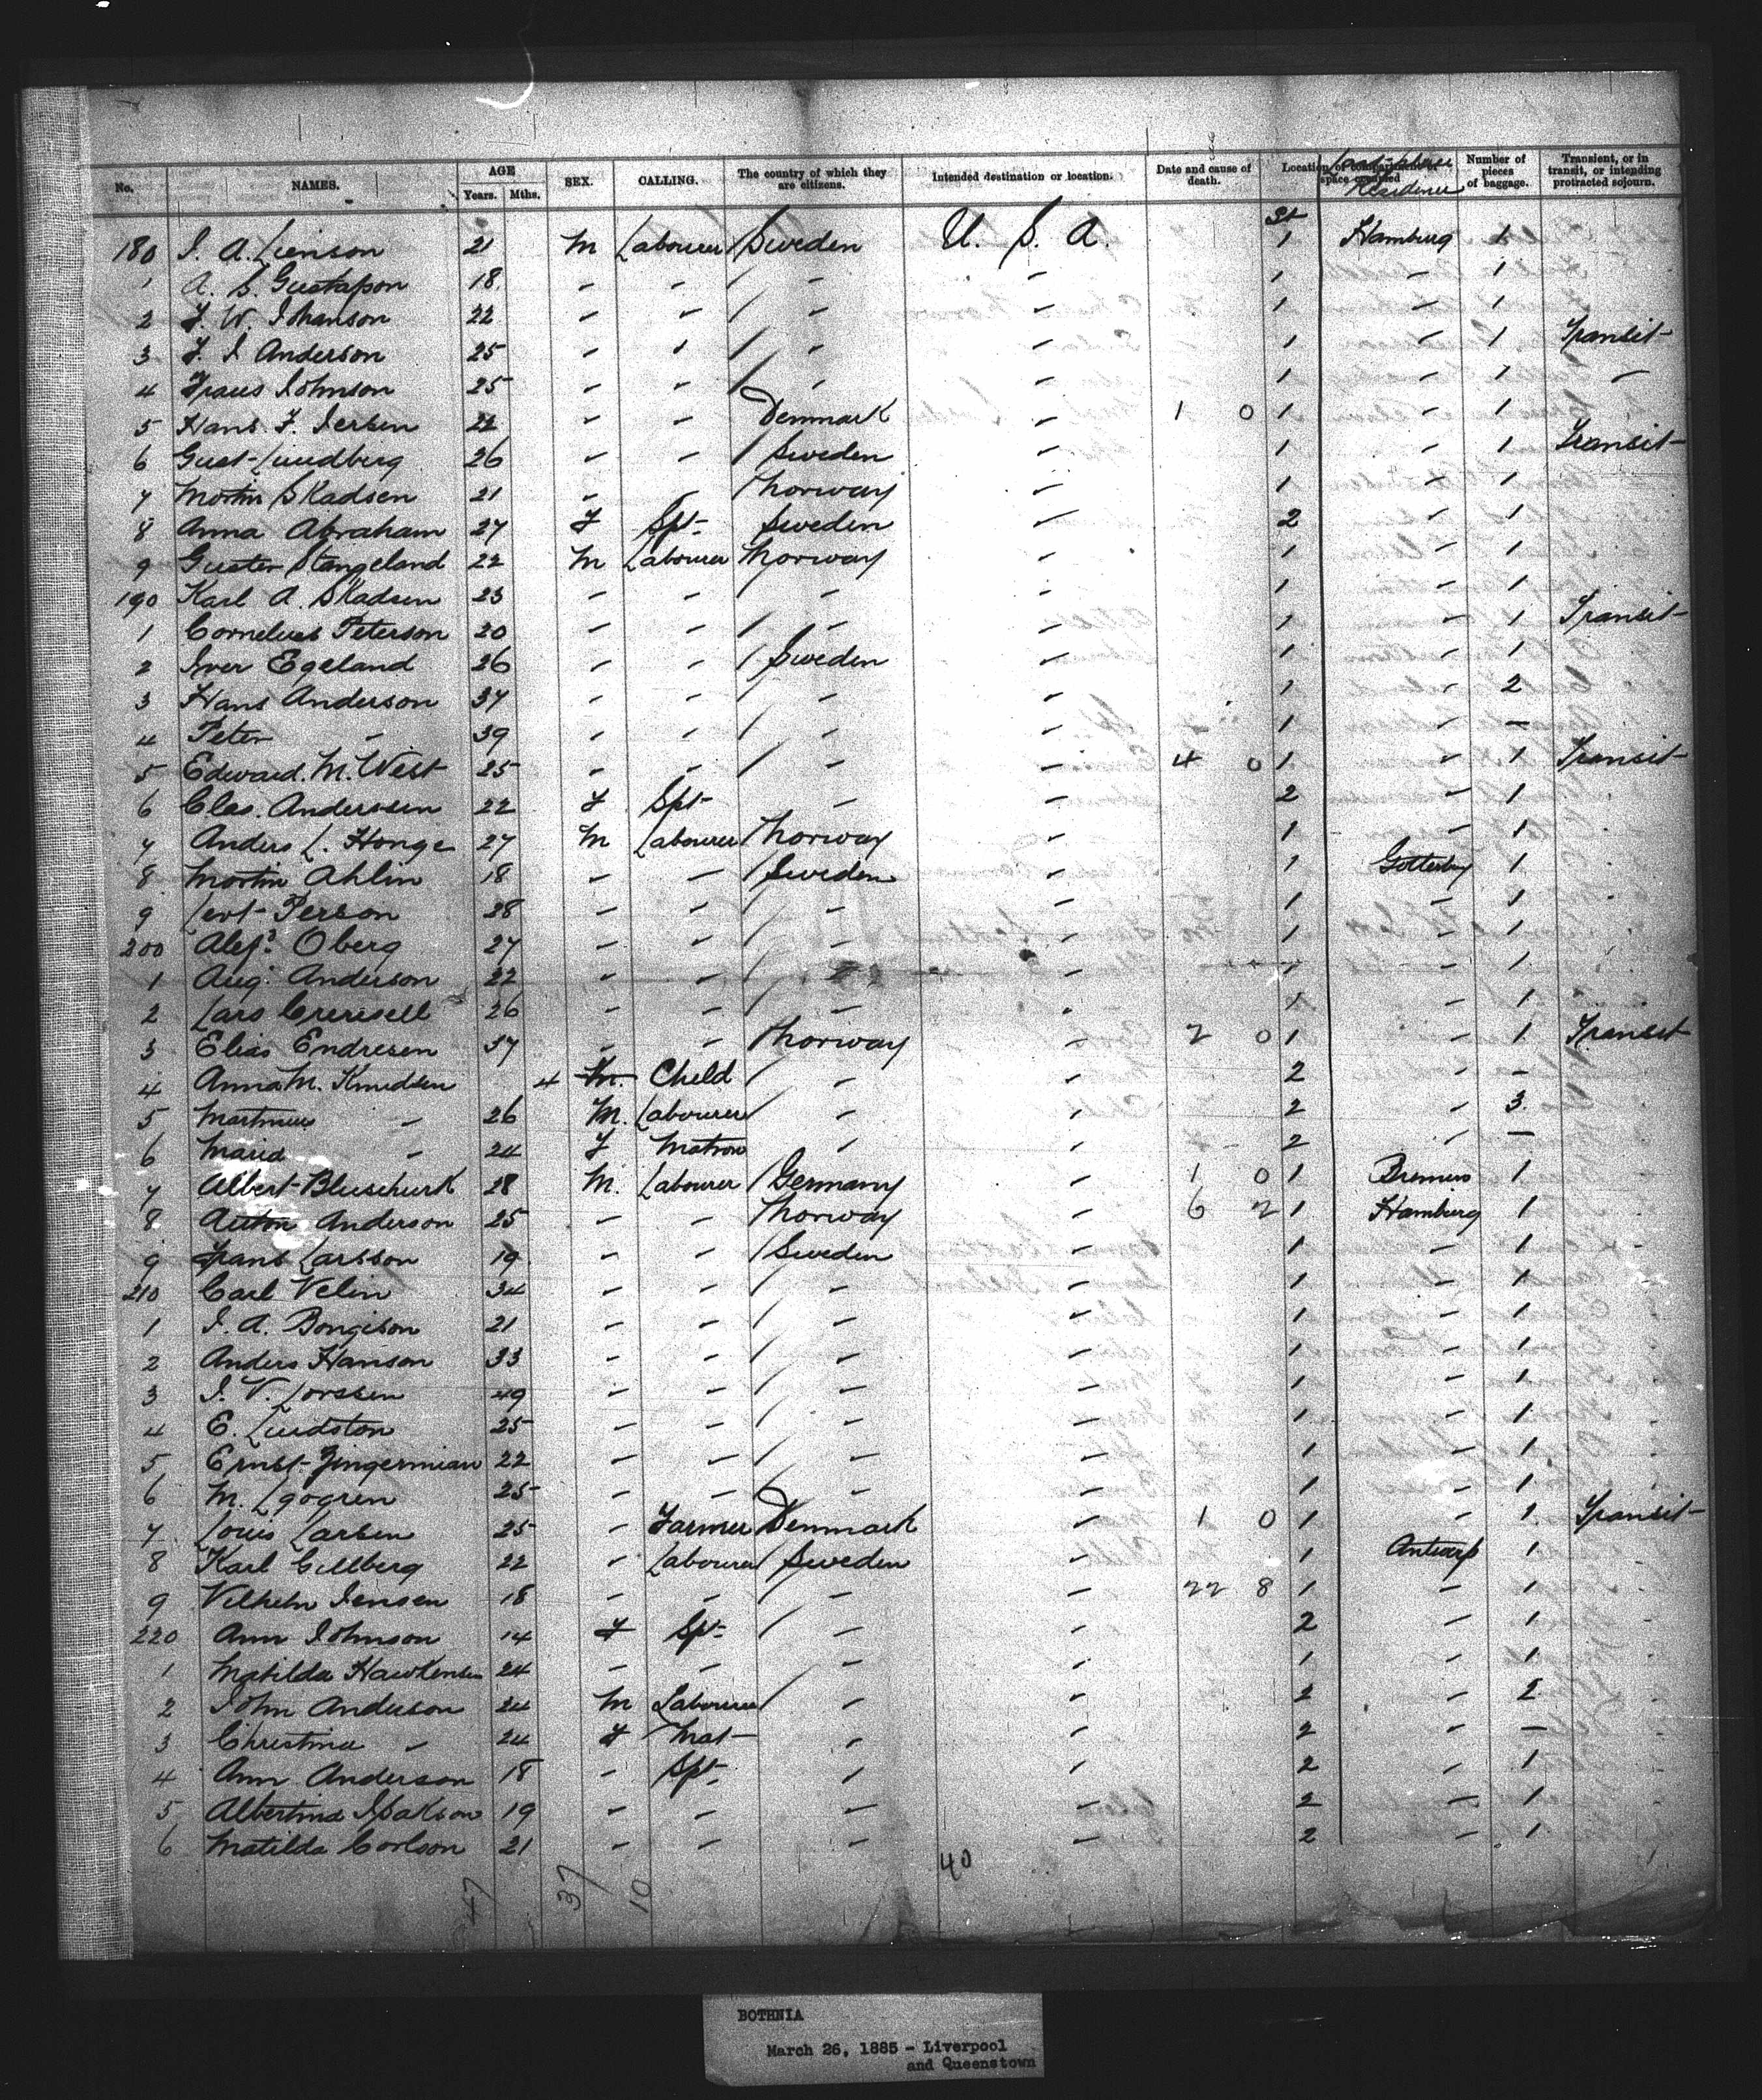 No. NAMES. AGE Years. Mths. SEX. CALLING. The country of which they are citizens. Intended destination or location. Date and cause of death. Location of compartment or space occupied Last place Residence Number of pieces of baggage. Transient, or in transit, or intending protracted sojourn.
St
180 21 M Labourer Sweden U. S. A. 1 Hamburg 1
1 A. S. Gustafson 18 - - / - - 1 - 1
2 F. W. Johanson 22 - - / - - 1 - 1
3 F. I Anderson 25 - - / - - 1 - 1 Transit
4 Johnson 25 - - / - - 1 - 1 -
5 Hans. F. Iersen 22 - - Denmark - 1 0 1 - 1
6 Gust Lundberg 26 - - / Sweden - 1 - 1 Transit
7 Martin Skadsen 21 - - / Norway - 1 - 1
8 Anna Abraham 27 F Spt Sweden - 2 - 1
9 Stangeland 22 M Labourer Norway - 1 - 1
190 Karl A. Skadsen 23 - - - - 1 - 1
1 Cornelius Peterson 20 - - / - - 1 - 1 Transit
2 Iver Egeland 26 - - / Sweden - 1 - 1
3 Hans Anderson 37 - - / - - 1 - 2
4 Peter - 39 - - / - - 1 - -
5 Edward. M. West 25 - - / - - 4 0 1 - 1 Transit
6 Clas. Anderssen 22 F Spt - - 2 - 1
7 Anders L. Honge 27 M Labourer / Norway - 1 - 1
8 Martin Ahlin 18 - - / Sweden - 1 1
9 Person 28 - - / - - 1 - 1
200 Oberg 27 - - / - - 1 - 1
1 Aug. Anderson 22 - - / - 1 - 1
2 Lars 26 - - / - - 1 - 1
3 Elias Endresen 37 - - Norway - 2 0 1 - 1 Transit
4 Anna M. Knudsen 4 M. Child / - - 2 - -
5 - 26 M. Labourer / - - 2 - 3
6 Maria - 24 F Matron - - 2 - -
7 Albert 28 M. Labourer / Germany - 1 0 1 1
8 Anton Anderson 25 - - / Norway - 6 2 1 Hamburg 1
9 Frans Larsson 19 - - / Sweden - 1 - 1
210 Carl Velin 34 - - / - - 1 - 1
1 I. A. Bongison 21 - - / - - 1 - 1
2 Anders Hanson 33 - - / - - 1 - 1
3 I. V. Lorssen 49 - - / - - 1 - 1
4 E. Lindston 25 - - / - - 1 - 1
5 Ernst 22 - - / - - 1 - 1
6 M. 25 - - - - 1 - 1
7 Louis Larsen 25 - Farmer Denmark - 1 0 1 - 1 Transit
8 Karl Gillberg 22 - Labourer / Sweden - 1 Antwerp 1
9 Vilhelm Jensen 18 - - / - - 22 8 1 - 1
220 Ann Johnson 14 F Spt / - - 2 - 1
1 Matilda 24 - - / - - 1 - 1
2 John Anderson 24 M Labourer / - - 2 - 2
3 Christina - 24 F Mat - - 2 - -
4 Ann Anderson 18 - Spt - - 2 - 1
5 Albertina Isakson 19 - - - - 2 - 1
6 Matilda Carlson 21 - - - - 2 - 1
47 37 10 40
BOTHNIA
March 26, 1885 - Liverpool
and Queenstown